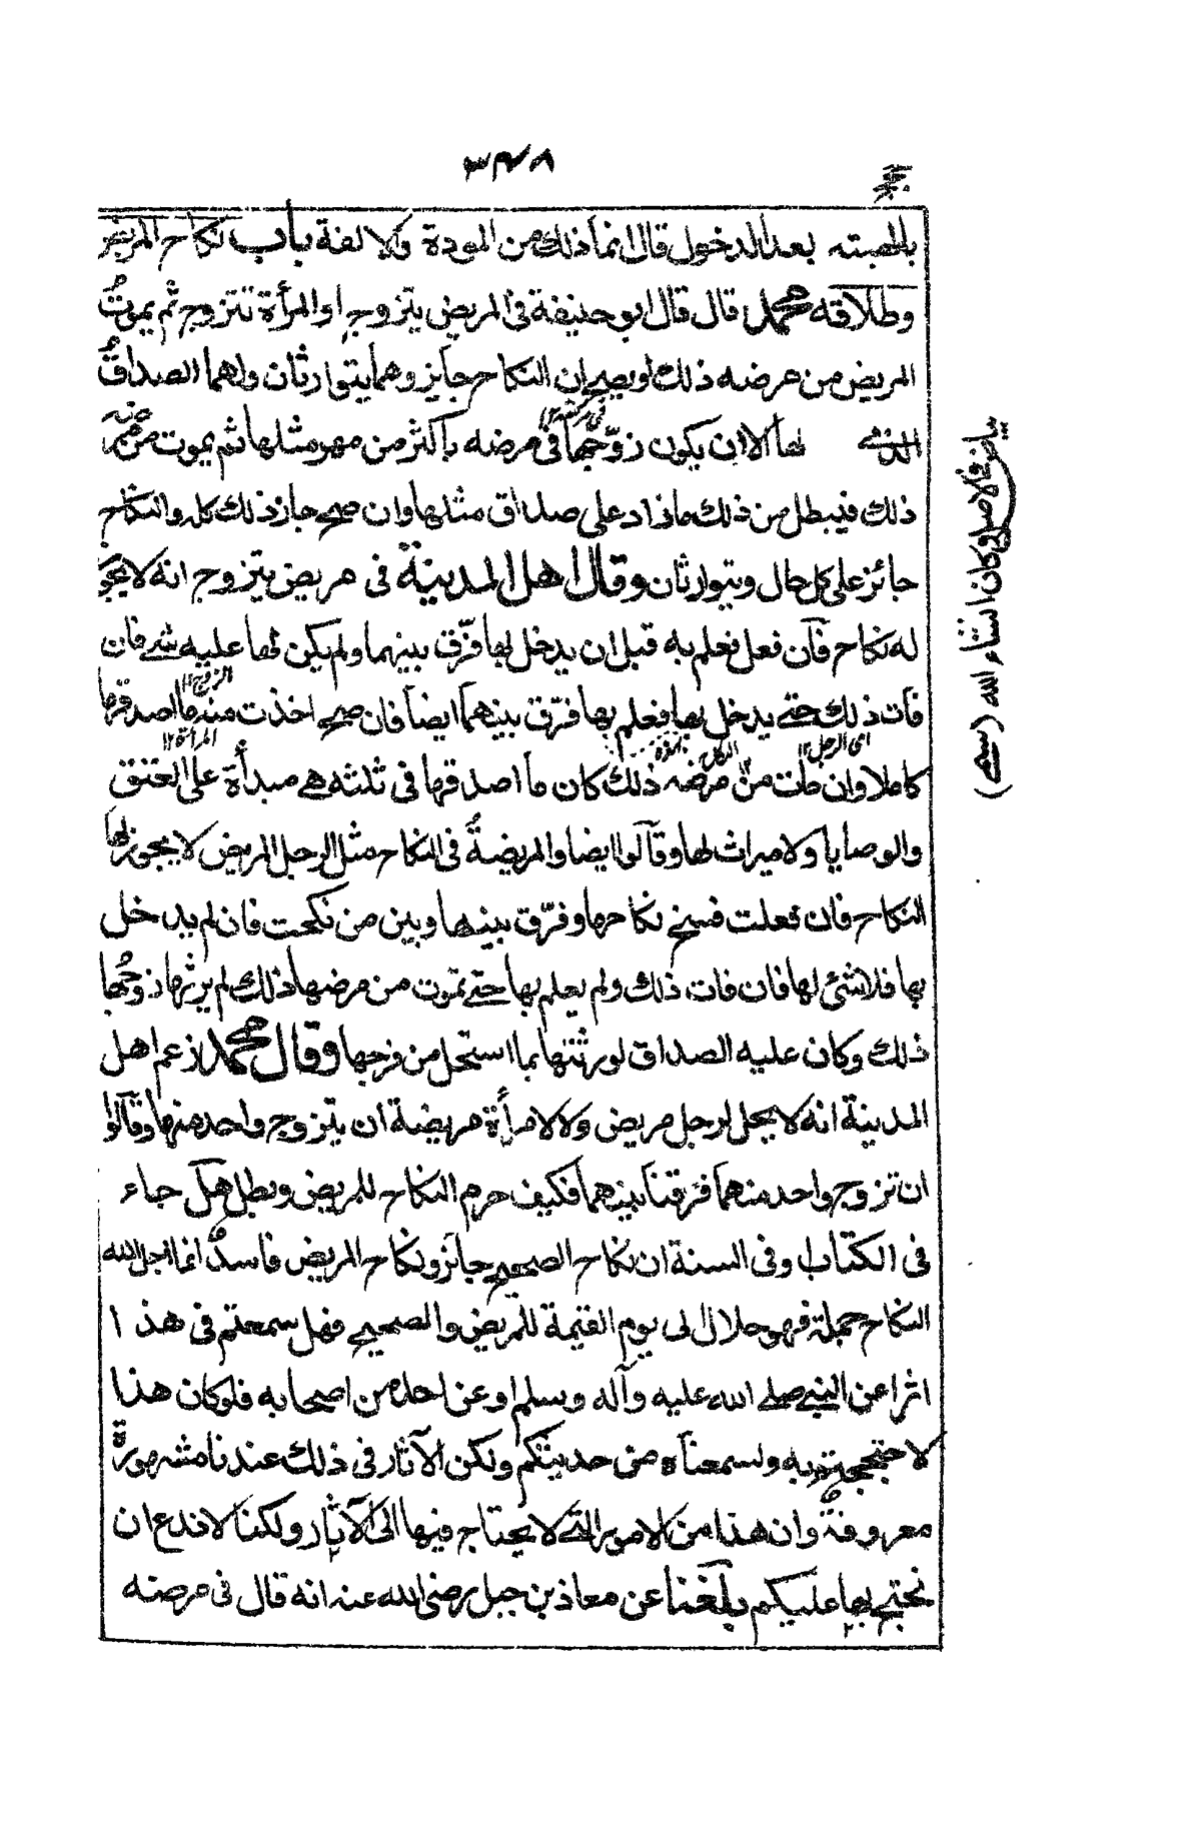 ٣٤٨
بالهبته بعد الدخول قال انما ذلك من المودة والالفة باب نكاح المريض
وطلاقه محمد قال قال ابو حنيفة فى المريض يتزوج او المرأة تتزوج ثم يموت
المريض من مرضه ذلك او يصح ان النكاح جايز وهما يتوارثان ولهما الصداق
الذے لها الا ان يكون زوّجها فى مرضه باكثر من مهر مثلها ثم يموت من مرضه
ذلك فيبطل من ذلك ما زاد على صداق مثلها وان صح جاز ذلك كله والنكاح
جائز على كل حال ويتوارثان وقال اهل المدينة فى مريض يتزوج انه لا يجوز
له نكاح فان فعل فعلم به قبل ان يدخل بها فرّق بينهما ولم يكن لها عليه شے فان
الزوج ١٢
فات ذلك حتے يدخل بها فعلم بها فرّق بينهما ايضا فان صح اخذت منه ما اصدقها
اى الرجل ١٢
المرأة ١٢
كاملا وان مات من مرضه ذلك كان ما اصدقها فى ثلثه هے مبدأة على العتق
والوصايا ولا ميراث لها وقالوا ايضا والمريضة فى النكاح مثل الرجل المريض لا يجوز لها
النكاح فان فعلت فسخ نكاحها وفرّق بينها وبين من نكحت فان لم يدخل
بها فلا شئ لها فان فات ذلك ولم يعلم بها حتے تموت من مرضها ذلك لم يرثها زوجها
ذلك وكان عليه الصداق لورثتها بما استحل من فرجها وقال محمد زعم اهل
المدينة انه لا يحل لرجل مريض ولا لامرأة مريضة ان يتزوج واحد منهما وقالوا
ان تزوج واحد منهما فرقنا بينهما فكيف حرم النكاح للمريض وبطل هل جاء
فى الكتاب وفى السنة ان نكاح الصحيح جائز ونكاح المريض فاسد انما احل الله
النكاح جملة فهو حلال الى يوم القيمة للمريض والصحيح فهل سمعتم فى هذا
اثرا عن النبے صلے الله عليه وآله وسلم او عن احد من اصحابه فلو كان هذا
لاحتججتم به ولسمعناه من حديثكم ولكن الآثار فى ذلك عندنا مشهورة
معروفة وان هذا من الامور التے لا يحتاج فيها الى الآثار ولكنا لا ندع ان
نحتج بها عليكم بلغنا عن معاذ بن جبل رضى الله عنه انه قال فى مرضه
بياض فى الاصل وكان انشاء الله (سمے)